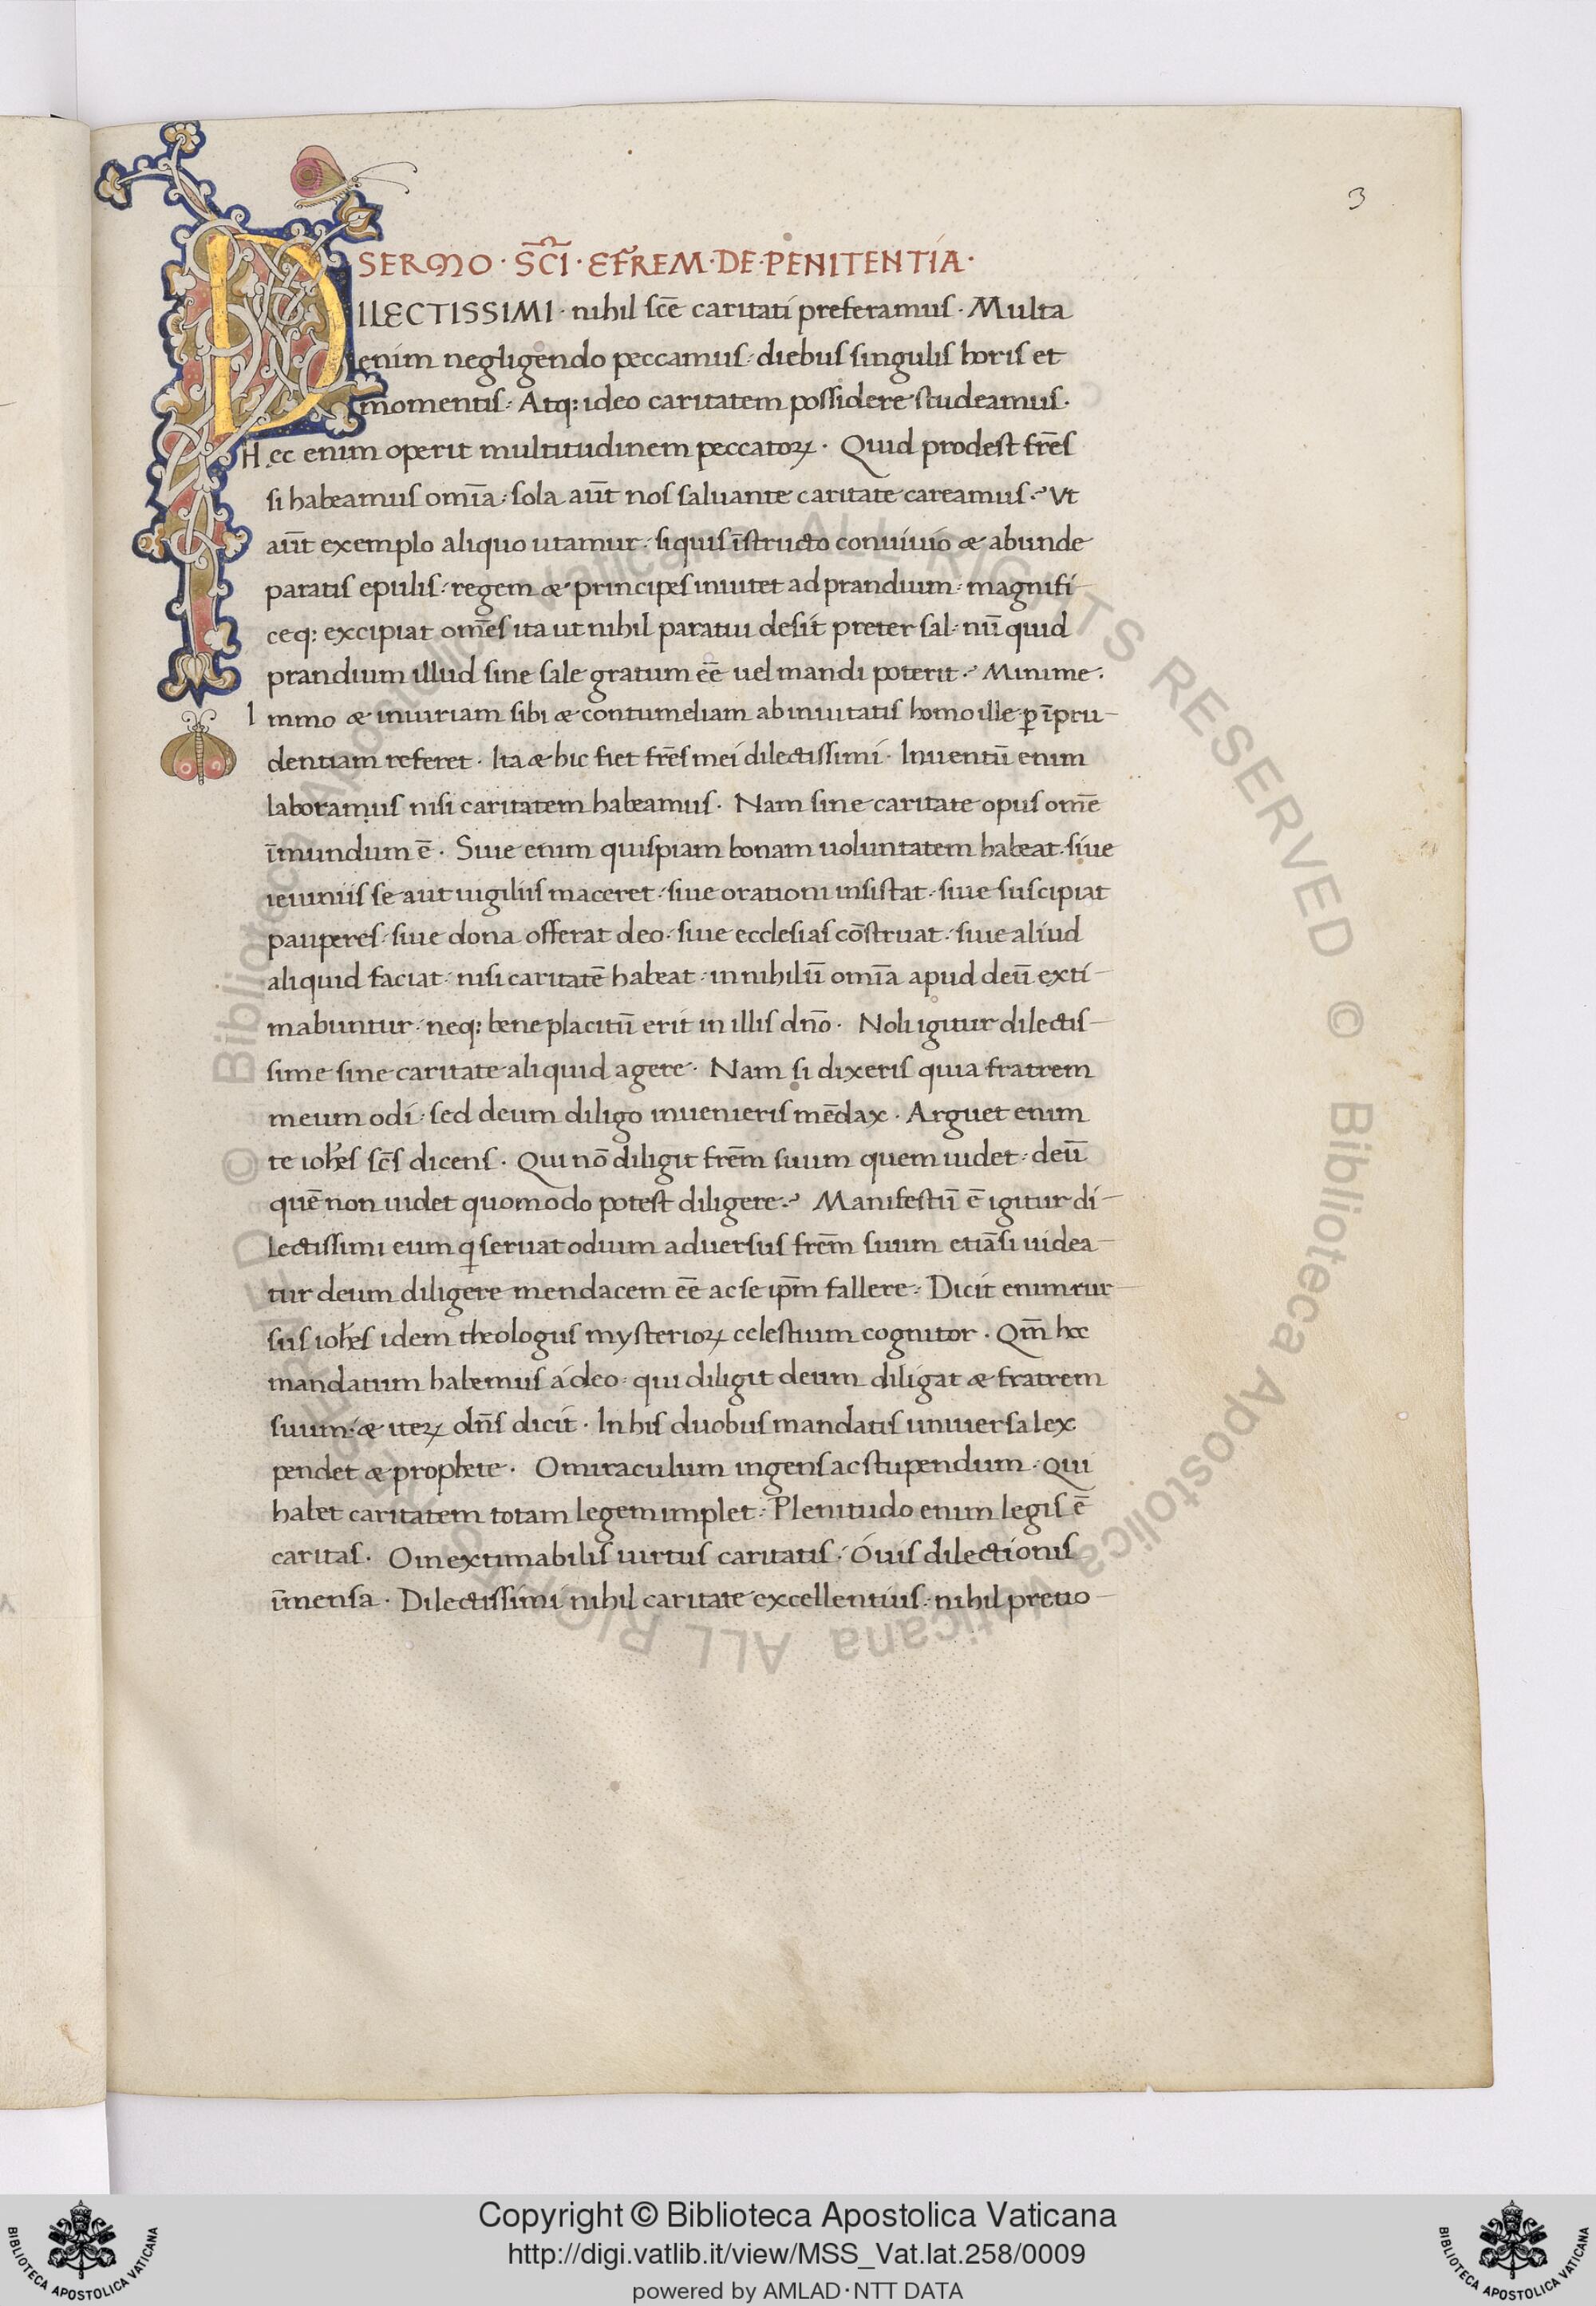 3
SERMO · SC̅I · EFREM · DE · PENITENTIA ·
DILECTISSIMI · nihil sce̅ caritati preferamus · Multa
enim negligendo peccamus : diebus singulis horis et
momentis · Atq: ideo caritatem possidere studeamus ·
Hec enim operit multitudinem peccatoꝝ · Quid prodest fre̅s
si habeamus omi̅a : sola au̅t nos saluante caritate careamus ·? Vt
au̅t exemplo aliquo utamur · siquis i̅structo conuiuio & abunde
paratis epulis : regem & principes inuitet ad prandium : magnifi-
ceq: excipiat ome̅s ita ut nihil paratui desit preter sal · nu̅ quid
prandium illud sine sale gratum ee̅ uel mandi poterit ·? Minime ·
Immo & iniuriam sibi & contumeliam ab inuitatis homo ille ꝑ i̅pru-
dentiam referet · Ita & hic fiet fre̅s mei dilectissimi · Inuentu̅ enim
laboramus nisi caritatem habeamus · Nam sine caritate opus ome̅
i̅mundum e̅ · Siue enim quispiam bonam uoluntatem habeat · siue
ieiuniis se aut uigiliis maceret · siue orationi insistat · siue suscipiat
pauperes · siue dona offerat deo · siue ecclesias co̅struat · siue aliud
aliquid faciat · nisi caritate̅ habeat · in nihilu̅ omi̅a apud deu̅ exti-
mabuntur · neq: bene placitu̅ erit in illis dn̅o · Noli igitur dilectis-
sime sine caritate aliquid agere · Nam si dixeris quia fratrem
meum odi : sed deum diligo inuenieris me̅dax · Arguet enim
te ioh̅es sc̅s dicens · Qui no̅ diligit fre̅m suum quem uidet : deu̅
que̅ non uidet quomodo potest diligere ·? Manifestu̅ e̅ igitur di-
lectissimi eum q̇ seruat odium aduersus fre̅m suum etia̅si uidea-
tur deum diligere mendacem ee̅ ac se ip̅m fallere : Dicit enim rur-
sus ioh̅es idem theologus mysterioꝝ celestium cognitor · Qm̅ hoc
mandatum habemus á deo · qui diligit deum diligat & fratrem
suum · & iteꝝ dn̅s dicit · In his duobus mandatis uniuersa lex
pendet & prophete · O miraculum ingens ac stupendum · Qui
habet caritatem totam legem implet : Plenitudo enim legis e̅
caritas · O inextimabilis uirtus caritatis · Ó uis dilectionis
i̅mensa · Dilectissimi nihil caritate excellentius : nihil pretio-
© Biblioteca Apostolica Vaticana ALL RIGHTS RESERVED © Biblioteca Apostolica Vaticana ALL RIGHTS RESERVED
BIBLIOTECA APOSTOLICA VATICANA
Copyright © Biblioteca Apostolica Vaticana
http://digi.vatlib.it/view/MSS_Vat.lat.258/0009
powered by AMLAD·NTT DATA
BIBLIOTECA APOSTOLICA VATICANA